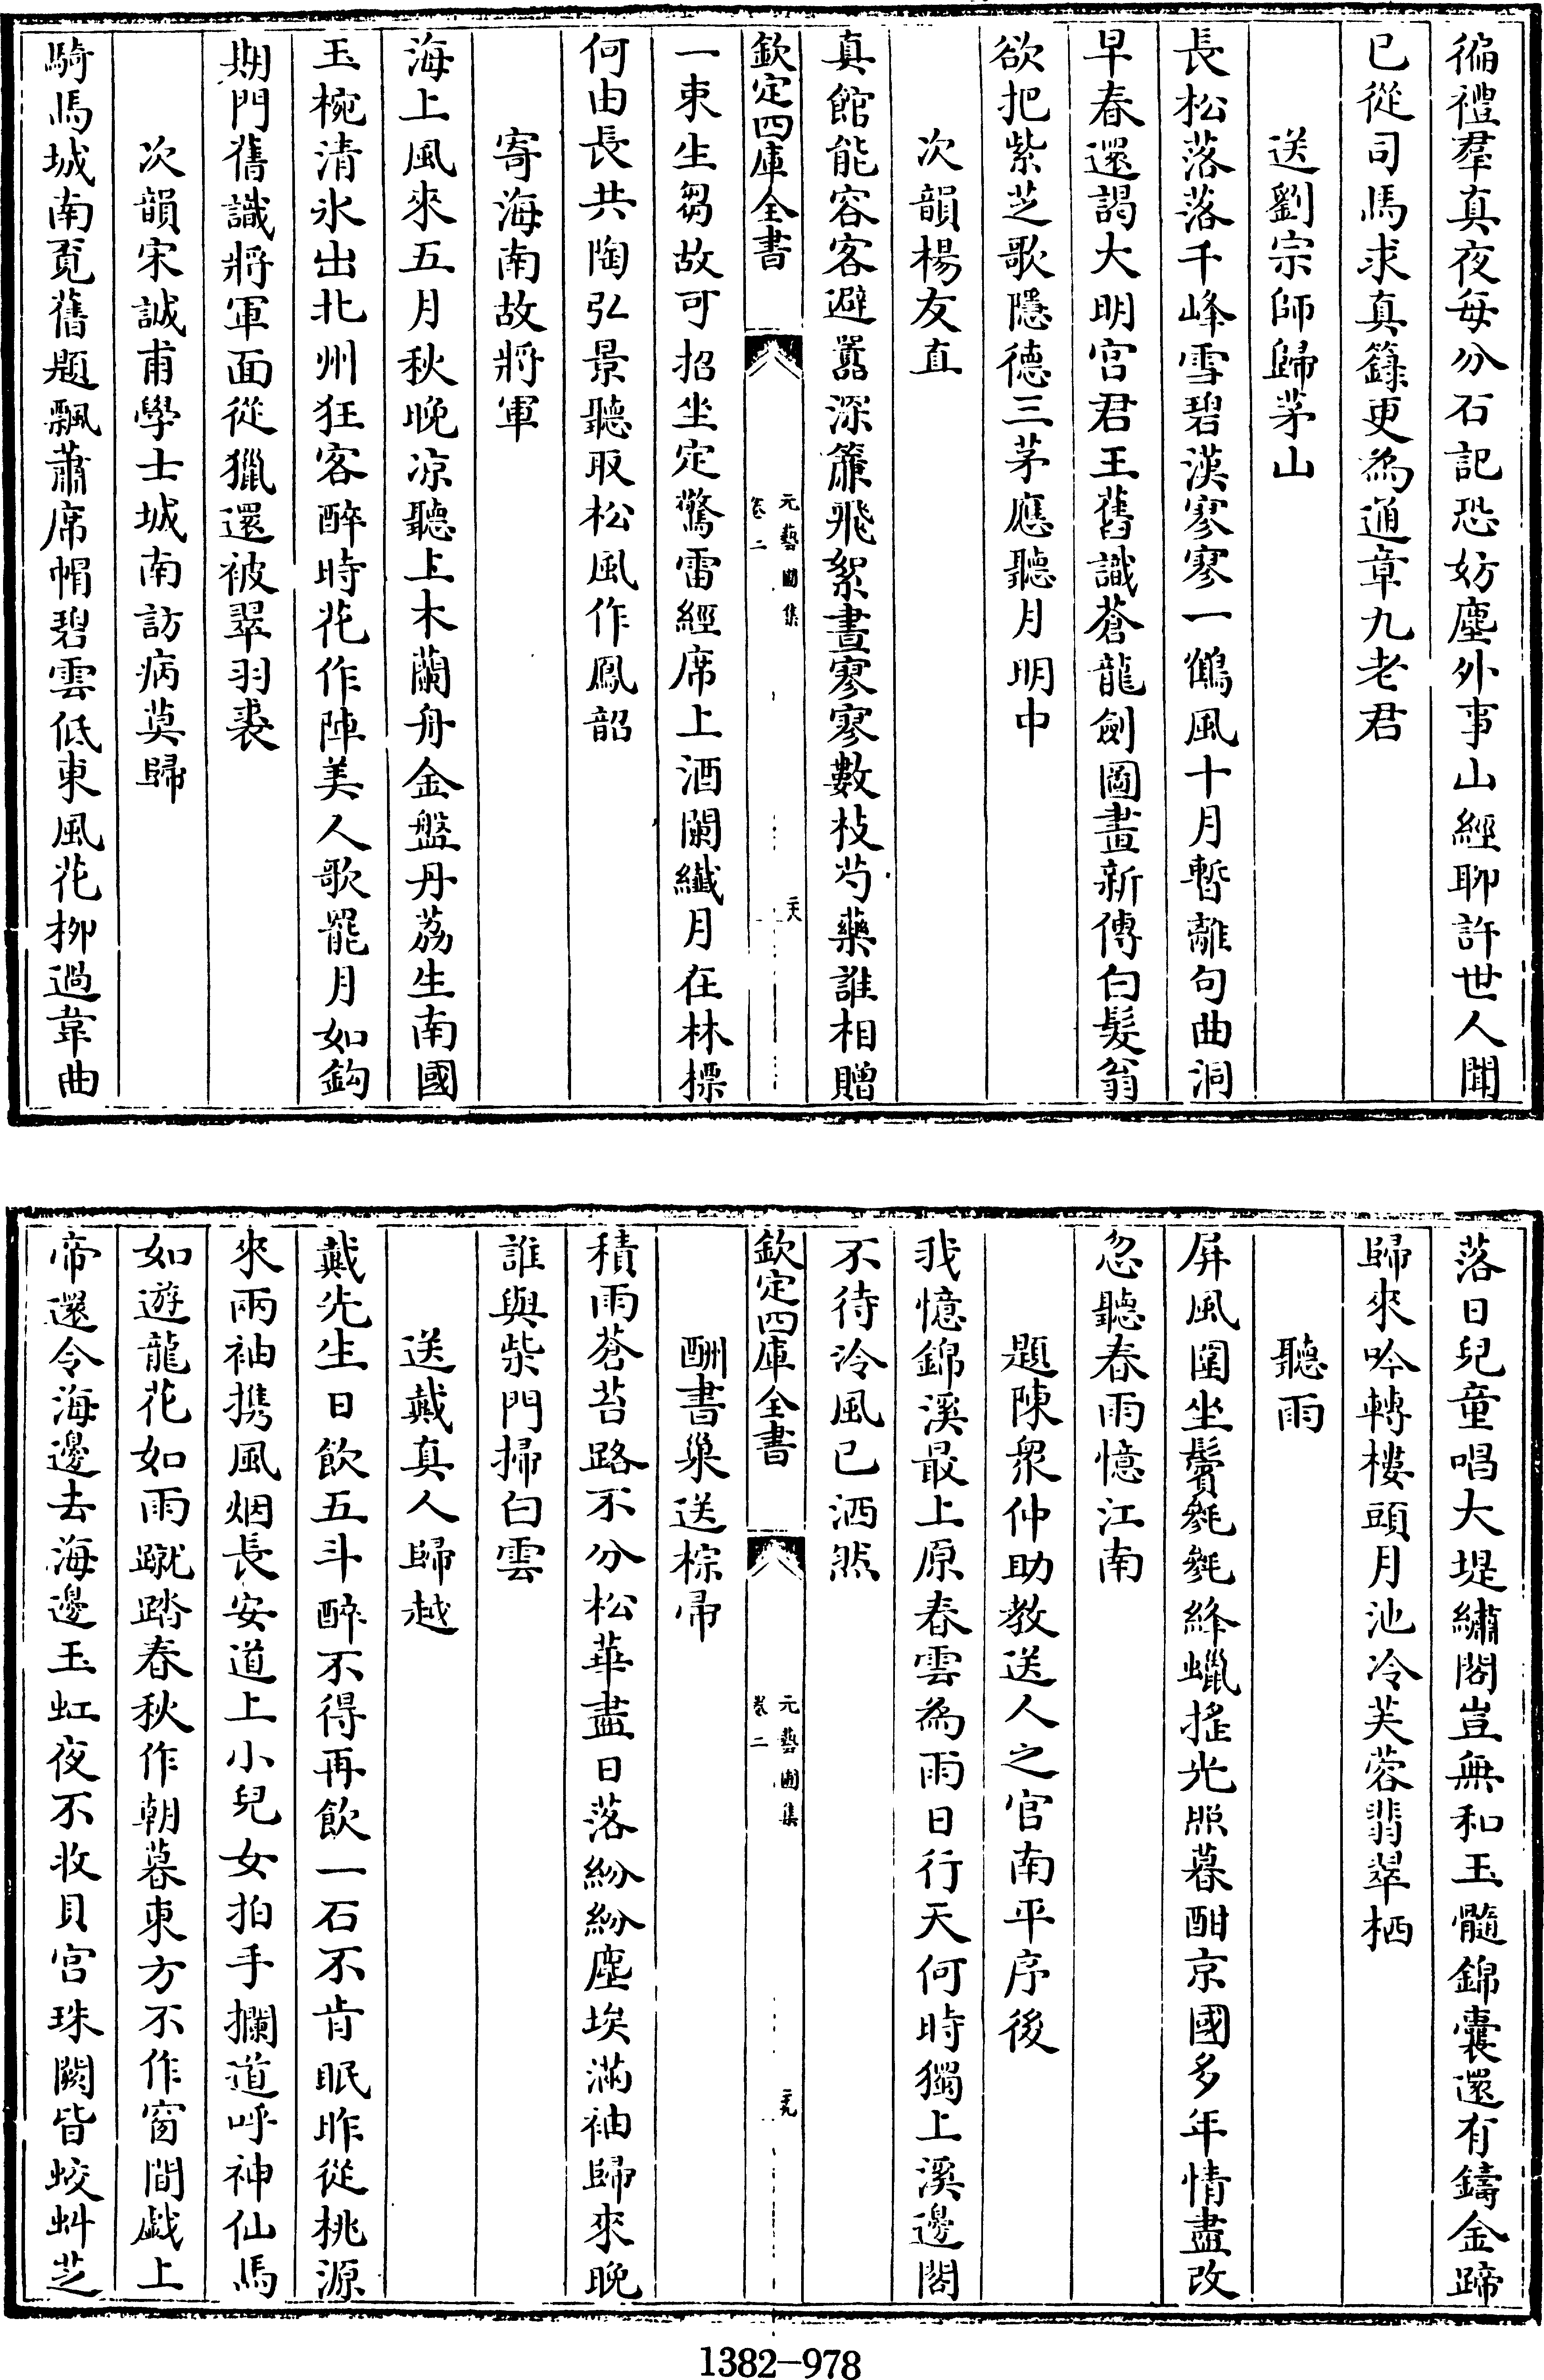 徧禮羣真夜每分石記恐妨塵外事山經聊許世人聞
已從司馬求真籙更為通章九老君
送劉宗師歸茅山
長松落落千峰雪碧漢寥寥一鶴風十月暫離句曲洞
早春還謁大明宫君王舊識蒼龍劍圖畫新傳白髮翁
欲把紫芝歌隱德三茅應聽月明中
次韻楊友直
真館能容客避囂深簾飛絮晝寥寥數枝芍藥誰相贈
欽定四庫全書
元藝圃集
卷二
二六
一束生芻故可招坐定驚雷經席上酒闌纎月在林摽
何由長共陶弘景聽取松風作鳳韶
寄海南故將軍
海上風來五月秋晚凉聽上木蘭舟金盤丹荔生南國
玉椀清氷出北州狂客醉時花作陣美人歌罷月如鈎
期門舊識將軍面從獵還被翠羽裘
次韻宋誠甫學士城南訪病莫歸
騎馬城南覓舊題飄蕭席帽碧雲低東風花柳過韋曲
落日兒童唱大堤繡閣豈無和玉髓錦囊還有鑄金蹄
歸來吟轉樓頭月池冷芙蓉翡翠栖
聽雨
屏風圍坐鬢毿毿絳蠟搖光照暮酣京國多年情盡改
忽聽春雨憶江南
題陳衆仲助教送人之官南平序後
我憶錦溪最上原春雲為雨日行天何時獨上溪邊閣
不待泠風已洒然
欽定四庫全書
元藝圃集
卷二
二九
酬書巢送棕帚
積雨蒼苔路不分松華盡日落紛紛塵埃滿袖歸來晚
誰與柴門掃白雲
送戴真人歸越
戴先生日飲五斗醉不得再飲一石不肯眠昨從桃源
來兩袖携風烟長安道上小兒女拍手攔道呼神仙馬
如遊龍花如雨蹴踏春秋作朝暮東方不作窗間戲上
帝還令海邊去海邊玉虹夜不收貝宫珠闕皆蛟虯芝
1382-978